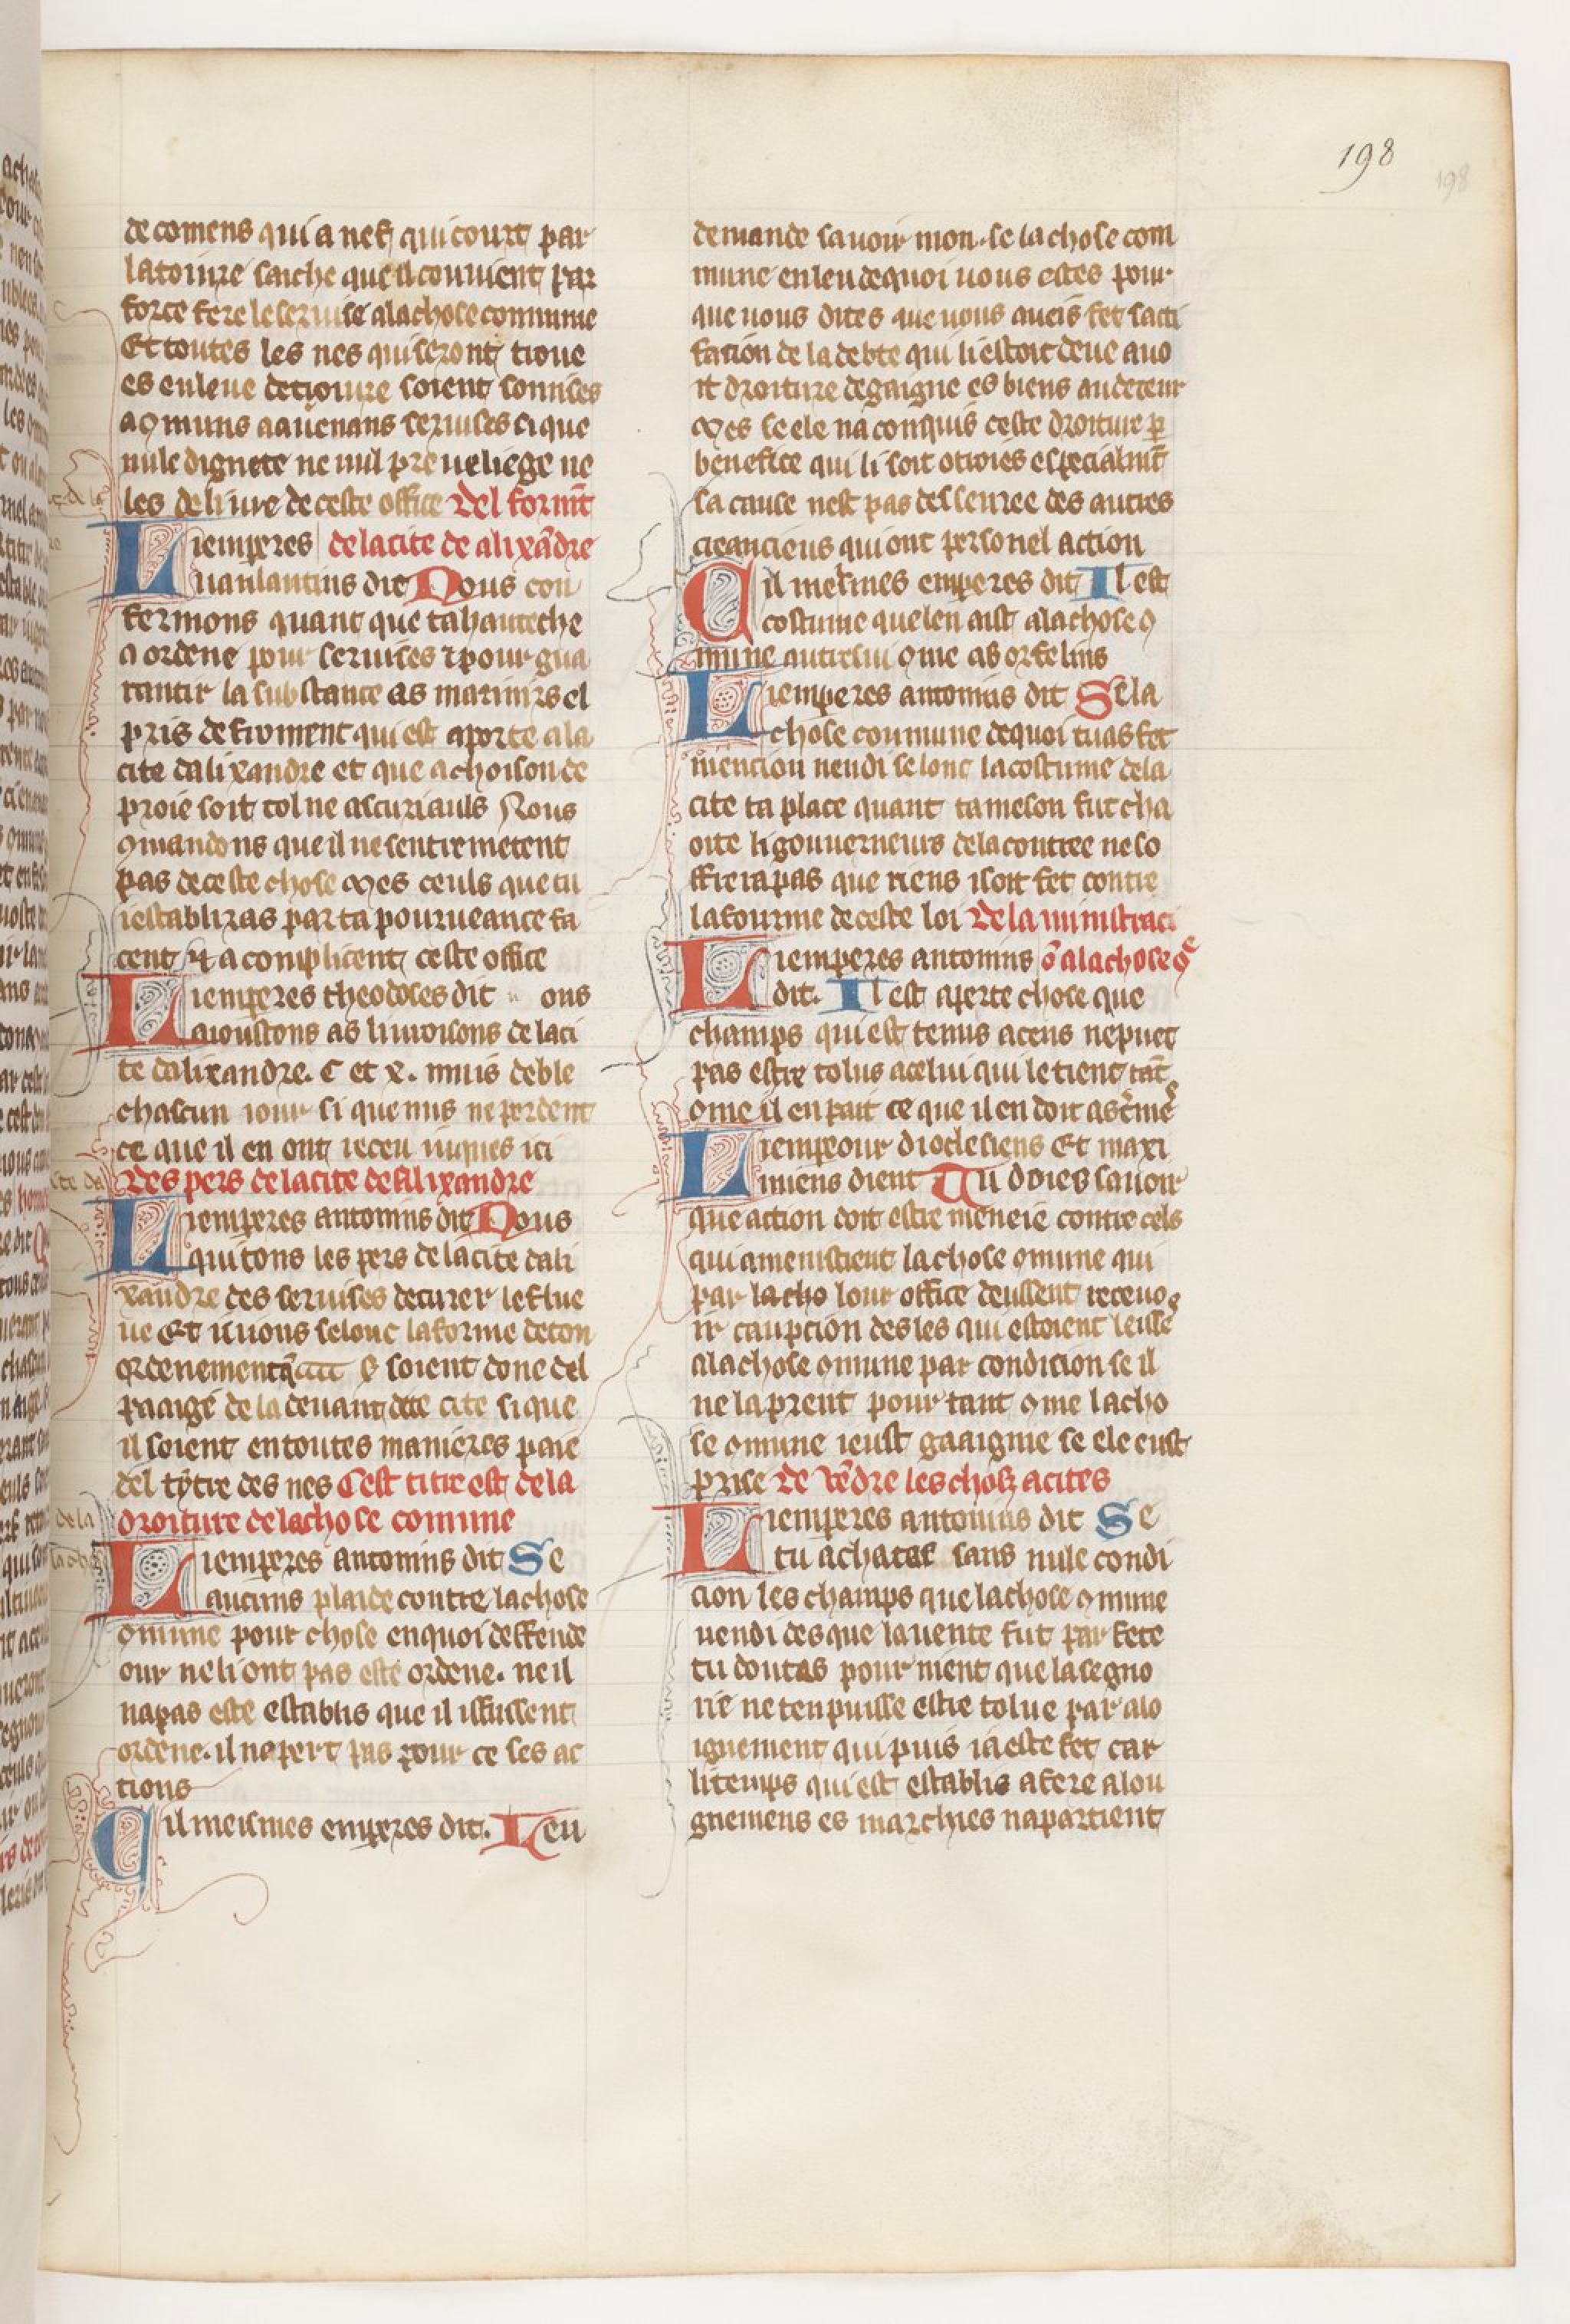 198
198
de comens qui a nef qui court par
la toiure saiche que il couuient par
force fere le seruise a la chose commune
Et toutes les nes qui seront troue
es en leue de tioiure soient sonmises
a 9muns a auenans seruises si que
nule dignete ne nul preueliege ne
les deliure de ceste office Del formt̃
Li emperes de la cite de alixãdre
uaulantins dit Nous con
fermons quant que ta hautesche
a ordene pour seruises ⁊ pour gua
rantir la substance as mariniers el
pris de froment qui est aporte a la
cite dalixandre et que achoison de
proie soit tolne as curiauls Nous
9mandons que il ne sentremetent
pas de ceste chose Mes ceuls que tu
i establiras par ta pourueance fa
cent ⁊ acomplicent ceste office
Li emperes theodoses dit ons
aioustons as liuroisons de la ci
te dalixandre. C et x. muis de ble
chascun iour si que nus ne perdent
ce que il en ont receu iuques ici
Des pers de la cite de Alixandre
Li emperes antonins dit Nous
quitons les pers de la cite dali
xandre des seruises de curer le flue
ue Et uuions selonc la forme de ton
ordenement soient done del
paaige de la deuant dite cite si que
il soient en toutes manieres paie
del tytre des nes Cest titre est de la
droiture de la chose comune
Li emperes antonins dit Se
aucuns plaide contre la chose
9mune pour chose en quoi deffende
our ne li ont pas este ordene. ne il
na pas este establis que il i fussent
ordene. il na pert pas pour ce ses ac
tions
Cil meismes emperes dit. Len
demande sauoir mon. se la chose com
mune en leu de quoi uous estes pour
que uous dites que uous aueis fet satti
facion de la debte qui li estoit deue auo
it droiture de gaigne es biens au deteur
Mes se ele na conquis ceste droiture p̱
benefice qui li soit otroies especialmt̃
sa cause nest pas desseuree des autres
creanciens qui ont personel action
Cil mesmes emperes dit Il est
costume que len aist a la chose 9
mune autresi 9me as orfelins
Li emperes antonins dit Se la
chose coumune de quoi tu as fet
mencion uendi selonc la costume de la
cite ta place quant ta meson fut cha
oite li gouuerneurs de la contree ne so
ffrera pas que riens i soit fet contre
la fourme de ceste loi De la ministraci
Li emperes antonins õ a la chose 9e
dit. Il est aperte chose que
champs qui est tenus a cens ne puet
pas estre tolus a celui qui le tient tãt
9me il en pait ce que il en doit
Li empeour diocleciens Et maxi
miens dient Tu doies sauoir
que action doit estre meneie contre cels
qui amenistrent la chose 9mune qui
par lacho lour office deussent receuo
ir caupcion des les qui estoient leisse
a la chose 9mune par condicion se il
ne la prent pour tant 9me la cho
se 9mune i eust gaaignie se ele eust
prise De vẽdre les choses a cites
Li emperes antonins dit Se
tu achatas sans nule condi
cion les champs que la chose 9mune
uendi des que la uente fut parfete
tu doutas pour nient que la segno
rie ne ten puisse estre tolue par alo
ignement qui puis i a este fet car
li temps qui est establis a fere alou
gnemens es marchies napartient